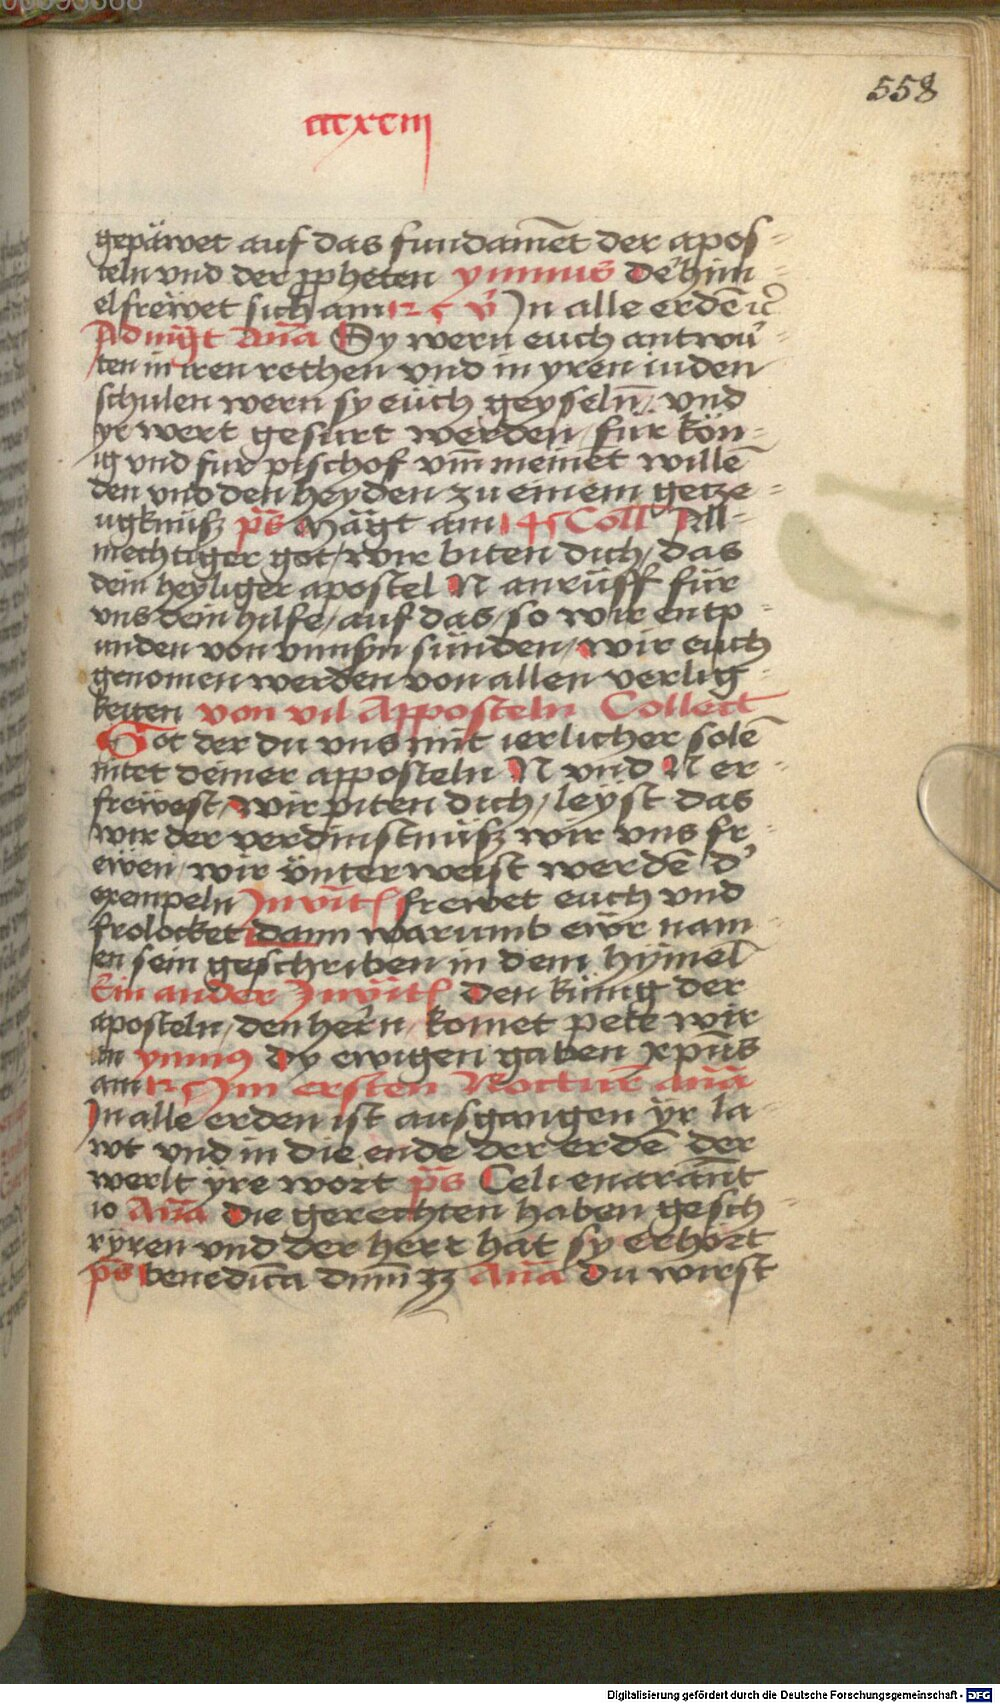 558
ccxciii
gepäwet auf das fundamēt der apos-
teln vnd der ꝓpheten ymnus De' him-
el frëwet sich am 12 5 v̄ In alle erdē
Ad mgt Anā Sy wern euch antwu̇r-
ten in iren rethen vnd in yren iuden
schulen wern sy eüch geyseln̄ vnd
yr wert gefürt werden für kön-
ig vnd fur pischof vm̄ meinet willē
den vnd den heyden zu einem getze-
ugknüsz ps̄ Mägt am 145 Coll' All-
mechtiger got / wir biten dich / das
dein heyliger apostel N anrüff für
vns dein hilfe / auf das / so wir entp-
unden von vnnsn sünden / wir euch
genomen werden von allen verlig-
keiten von vil Apposteln Collect
Got der du vns mit ierlicher solē-
nitet deiner apposteln N vnd N er-
frëwest / wir piten dich / leyst das
wir der verdinstnüsz wir vns fr-
ewen / wir vnterweist werdē d'
exempeln Inuit frewet euch vnd
frolocket dann warumb ewr nam-
en sein geschriben in dem hymel
Ein ander Inuit Den künig der
aposteln / den hern / komet pete wir
an ymnus Dy ewigen gaben xpūs
am 125 Im ersten Nocturn̄ anā
In alle erden ist ausgangen ÿr la-
wt vnd in die ende der erdē der
werlt ÿre wort ps̄ Celi enarānt
10 Anā Die gerechten haben gesch-
rÿren vnd der herr hat sy erhört
ps̄ benedicā dnm̄ 33 Anā Du wirst
Digitalisierung gefördert durch die Deutsche Forschungsgemeinschaft - DFG